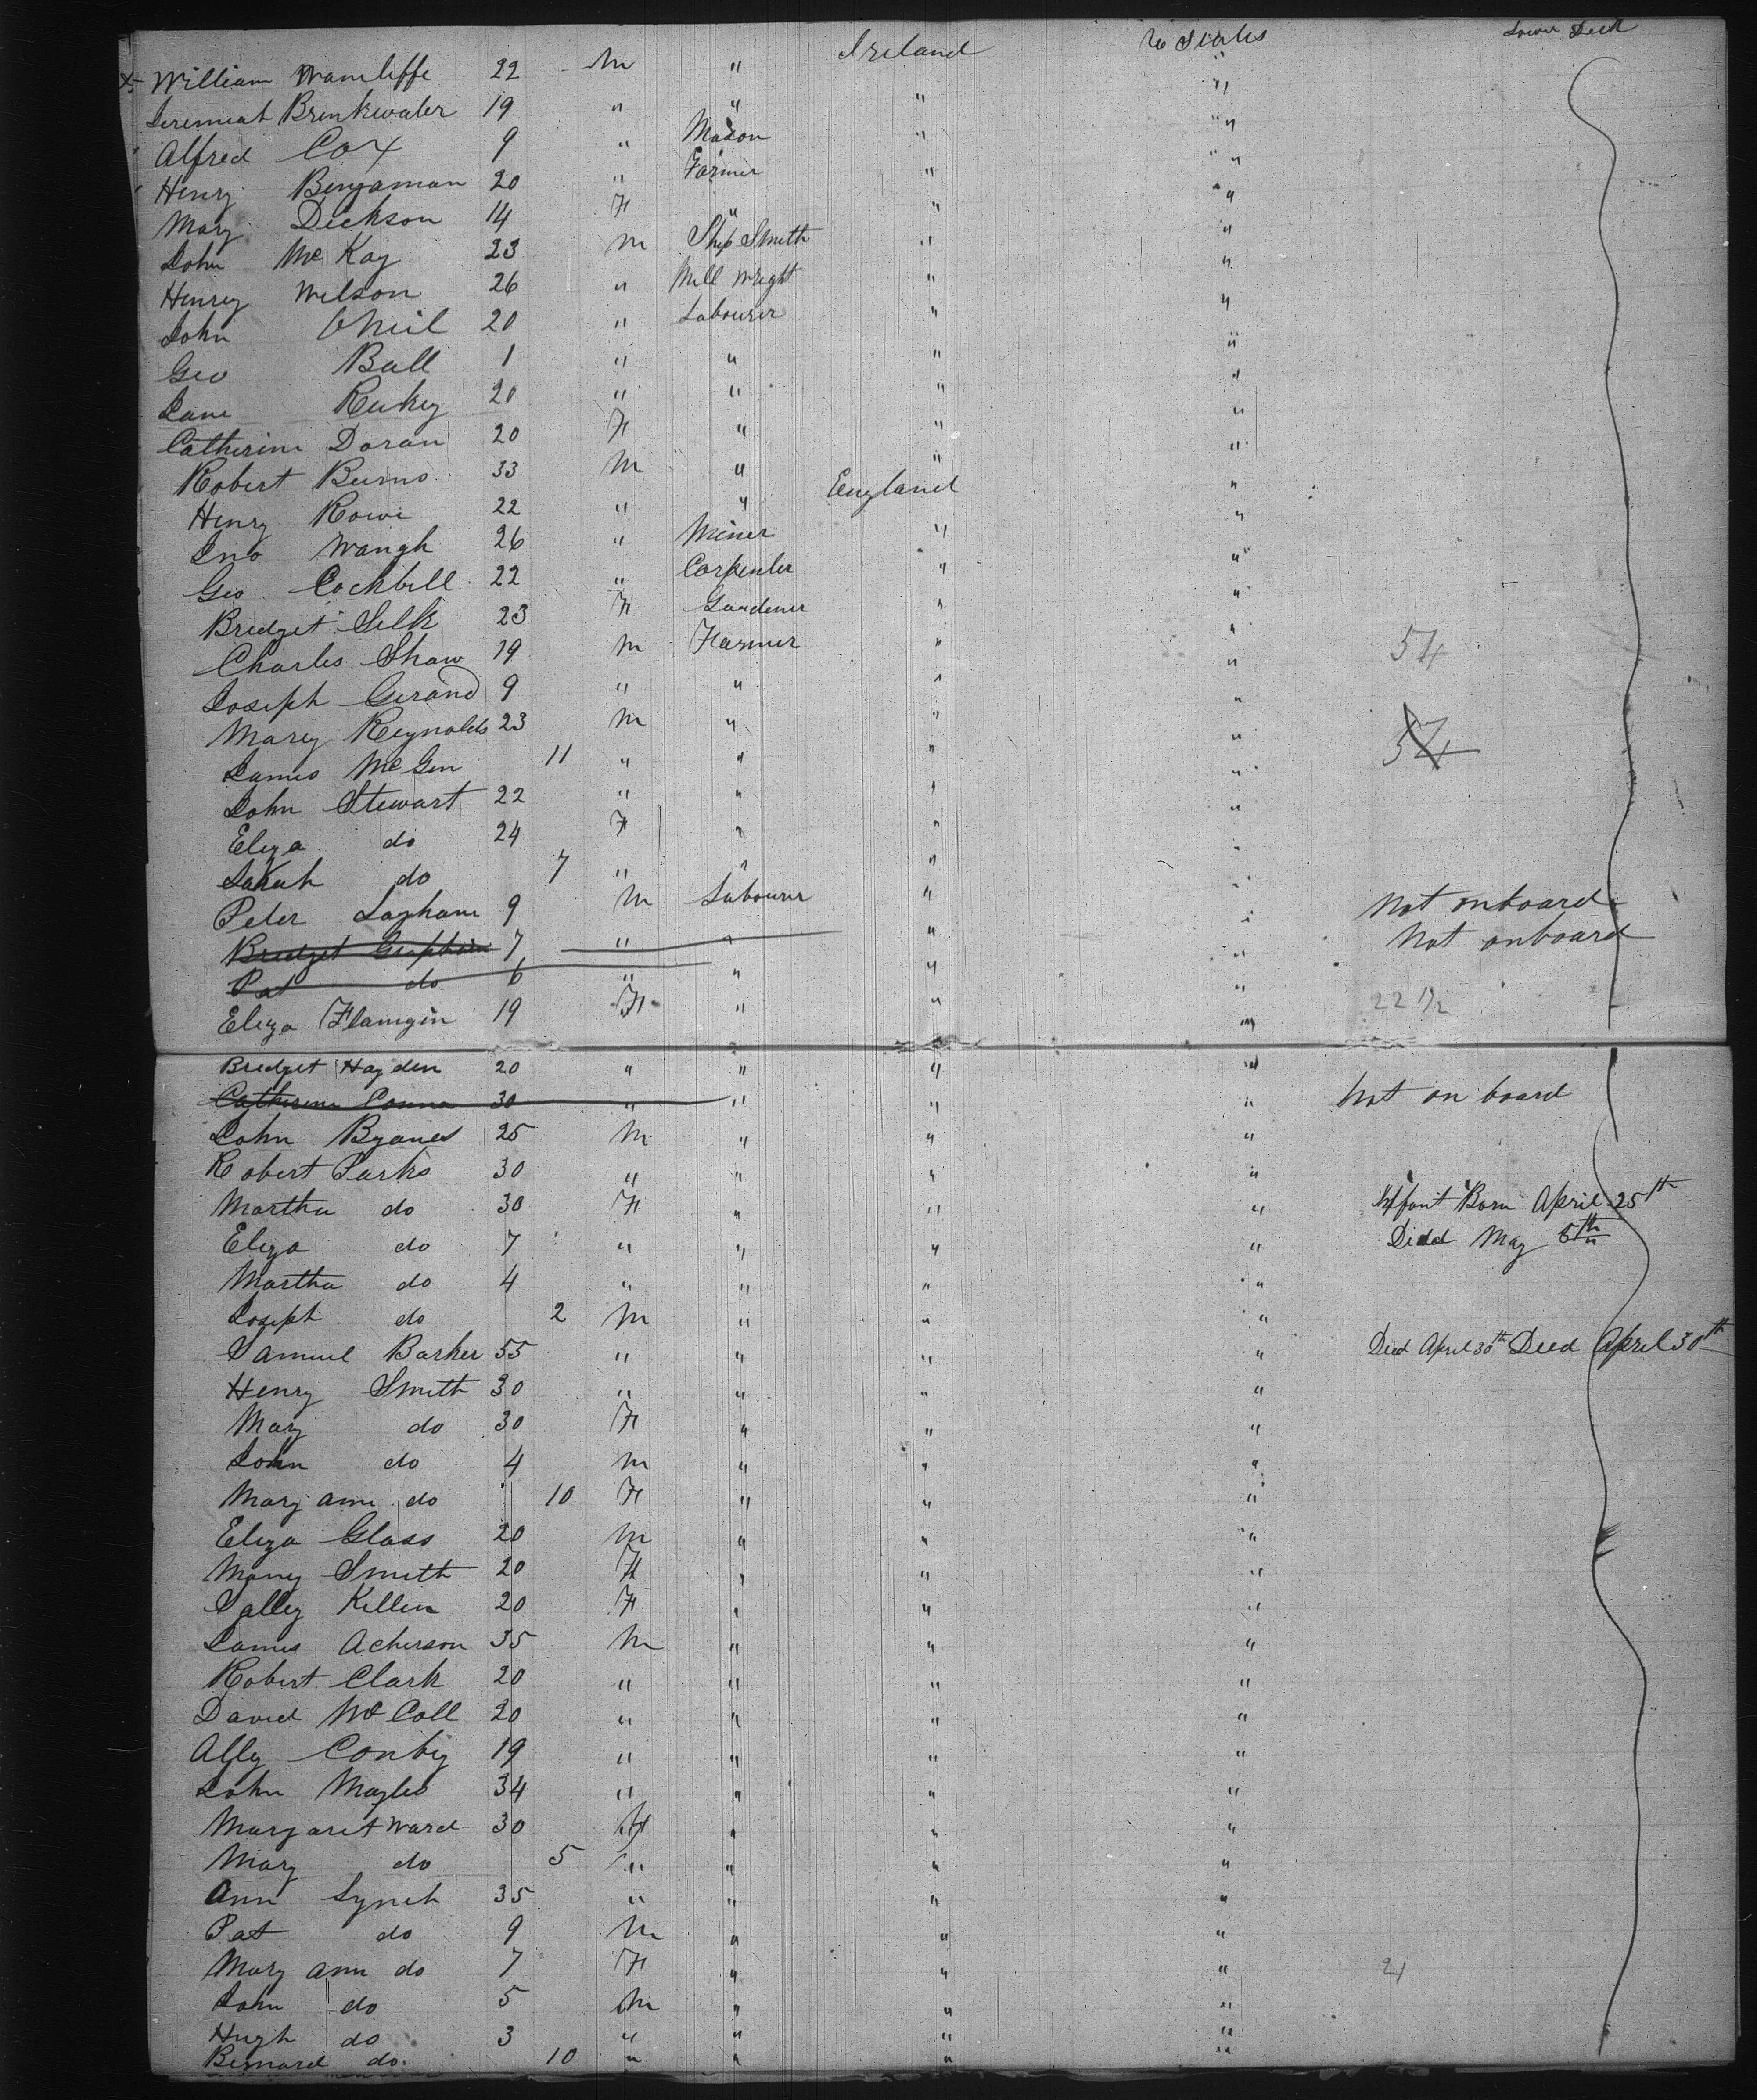 Ireland U States Lower Deck
William Wamcliffe 22 M " " "
Jeremiah Brinkwater 19 " " " "
Alfred Cox 9 " Mason " "
Henry Benjaman 20 " Farmer " "
Mary Dickson 14 F " " "
John McKay 23 M Ship Smith " "
Henry Wilson 26 " Mill Wright " "
John ONeil 20 " Labourer " "
Geo Ball 1 " " " "
Jane 20 " " " "
Catherine Doran 20 F " " "
Robert Burns 33 M " " "
Henry Rowe 22 " " England "
Jno Waugh 26 " Miner " "
Geo Cockbill 22 " Carpenter " "
Bridget Silk 23 F Gardener " "
Charles Shaw 19 M Farmer " " 54
Joseph Gerand 9 " " " "
Mary Reynolds 23 M " " " 54
James McGen 11 " " " "
John Stewart 22 " " " "
Eliza do 24 F " " "
Sarah do 7 " " " "
Peter Laphane 9 M Labourer " " Not onboard
Bridget 7 " " " " Not onboard
Pat do 6 " " " "
Eliza Flamgin 19 F " " " 22 1/2
Bridget Hayden 20 " " " "
Catherine Conna 30 " " " " Not on board
John Byanes 25 M " " "
Robert Parks 30 " " " "
Martha do 30 F " " " Inffant Born April 25th
Eliza do 7 " " " " Died May 6th
Martha do 4 " " " "
Joseph do 2 M " " "
Samuel Barker 55 " " " " Died April 30th Died April 30th
Henry Smith 30 " " " "
Mary do 30 F " " "
John do 4 M " " "
Mary ann do 10 F " " "
Eliza Glass 20 M " " "
Mary Smith 20 F " " "
Salley Killin 20 F " " "
James Acherson 35 M " " "
Robert Clark 20 " " " "
David McColl 20 " " " "
Ally Conby 19 " " " "
John Mayles 34 " " " "
Margaret Ward 30 F " " "
Mary do 5 " " " "
Ann Lynch 35 " " " "
Pat do 9 M " " "
Mary ann do 7 F " " " 21
John do 5 M " " "
Hugh do 3 " " " "
Bernard do 10 " " " "